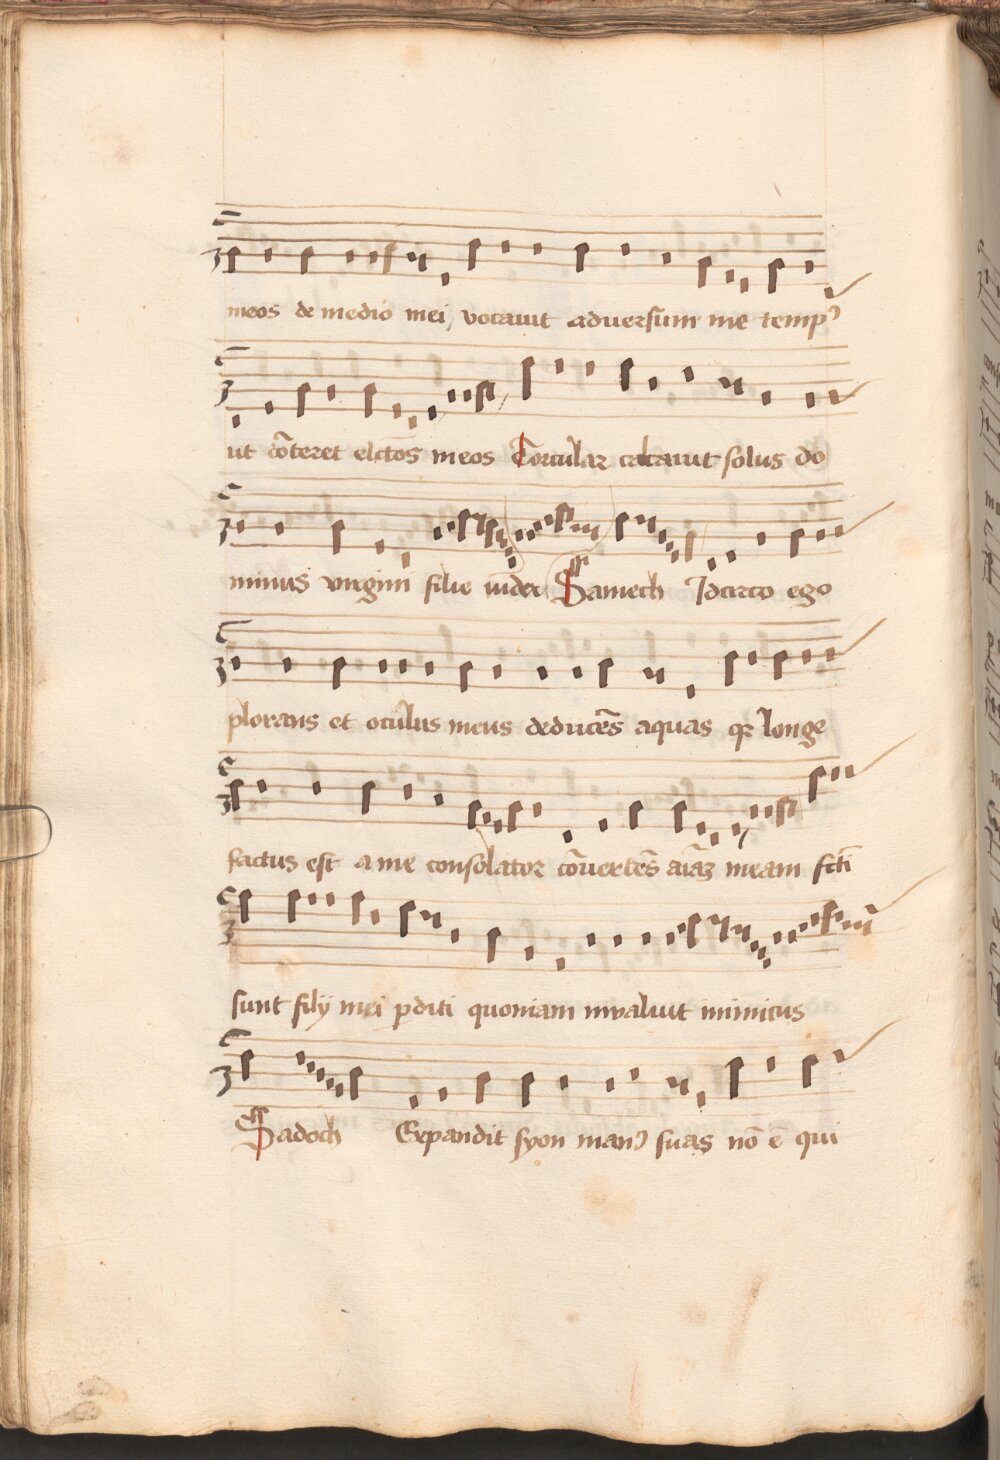 meos de medio mei vocauit aduersum me tempꝰ
ut cōteret elctōs meos Torcular calcauit solus do
minus virgini filie iuda Samech Idcirco ego
plorans et oculus meus deducēs aquas qꝛ longe
factus est a me consolator cōuertēs aīaꝫ meam fcti
sunt filij mei ꝑditi quoniam inualuit inimicus
Sadoch Expandit syon manꝰ suas nō ē qui